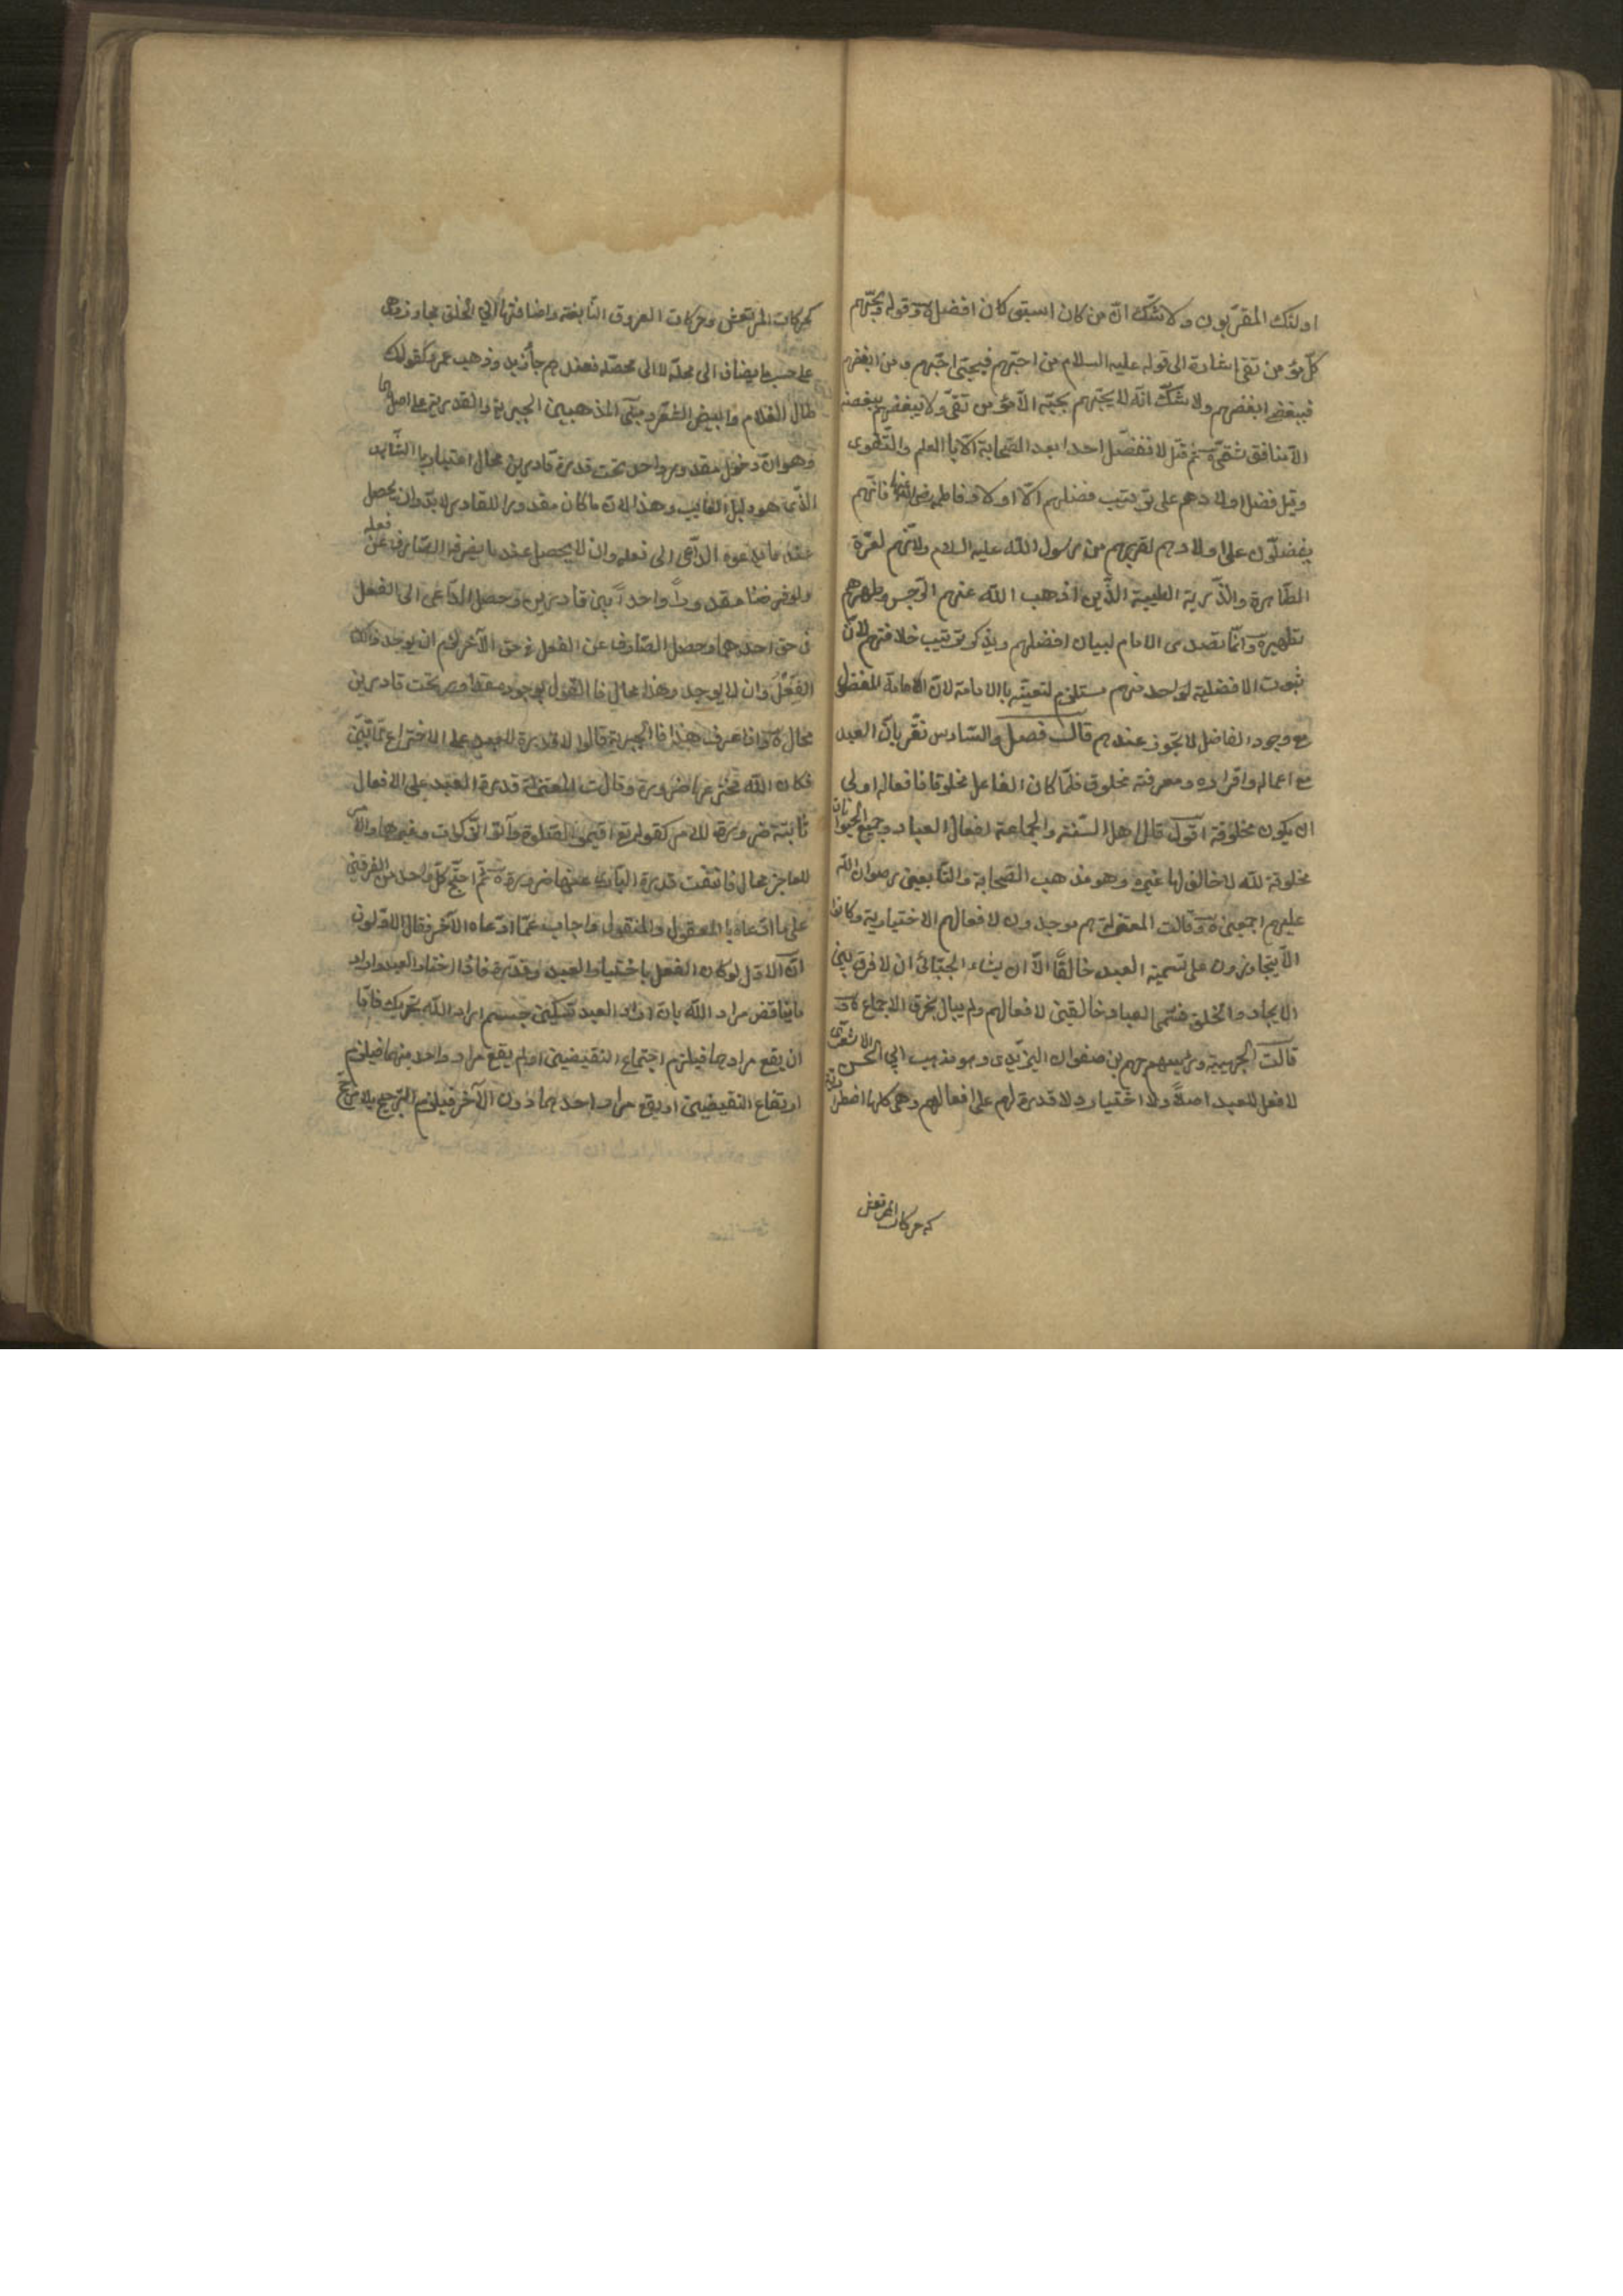 اولئك المقرّبون ولا شكّ انّ من كان اسبق كان افضل وقوله ويحبّهم
كلّ مؤمن تقى اشارة الى قوله عليه السلام من احبّهم فبحبّى احبّهم ومن ابغضهم
فببغضى ابغضهم ولا شكّ انّه لا يحبّهم بحبّه الّا مؤمن تقىّ ولا يبغضهم ببغضه
الّا منافق شقىّ ثمّ قيل لا نفضّل احدا بعد الصّحابة الّا بالعلم والتّقوى
وقيل فضل اولادهم على ترتيب فضلهم الّا اولاد فاطمة رضى الله عنها فانّهم
يفضلّون على اولادهم لقربهم من رسول الله عليه السلام ولانّهم لعترة
الطّاهرة والذّرية الطيبة الّذين اذهب الله عنهم الرّجس وطهرهم
تطهيرا وانّما تصدى الامام لبيان افضلهم ويذكر ترتيب خلافتهم لانّ
ثبوت الافضلية لواحد منهم مستلزم لتعيّنه بالامامة لانّ الامامة للمفضول
مع وجود الفاضل لا يجوز عندهم قال فصل والسّادس نقّر بانّ العبد
مع اعماله واقراره ومعرفته مخلوق فلمّا كان الفاعل مخلوقا فافعاله اولى
ان يكون مخلوقة اقول قال اهل السّنة والجماعة افعال العباد وجميع الحيوانات
مخلوقة لله لا خالق لها غيره وهو مذهب الصّحابة والتّابعين رضوان الله
عليهم اجمعين وقالت المعتزلة هم موجدون لافعالهم الاختيارية وكانوا
لا يتجاوزون على تسمية العبد خالقًا الّا ان يشاء الجبّائى ان لا فرق بين
الايجاد والخلق فسّمى العباد خالقين لافعالهم ولم يبال بخرق الاجماع
قالت الجهمية ورئيسهم جهم بن صفوان الترمذى وهو مذهب ابى الحسن الاشعرى
لا فعل للعبد اصلاً ولا اختيار ولا قدرة لهم على افعالهم وهى كلها اضطرارية
كحركات المرتعش
كحركات المرتعش وحركات العروق النّابضة واضافتها الى الخلق مجاز وهى
على حسب ما يضاف الى محلّه لا الى محصّله فعندهم جاء زيد وذهب عمرو كقولك
طال الغلام وابيض الشّعر ومبنى المذهبين الجبرية والقدرية على اصلهما
وهو انّ دخول مقدور واحد تحت قدرة قادرين محال اعتبارا بالشّاهد
الّذى هو دليل الغايب وهذا لانّ ما كان مقدورا للقادر لا بدّ وان يحصل
عند ما يدعوه الدّاعى الى فعله وان لا يحصل عند ما يصرفه الصّارف عن فعله
ولو فرضنا مقدوراً واحداً بين قادرين وحصل الدّاعى الى الفعل
فى حق احدهما وحصل الصّارف عن الفعل فى حق الآخر لزم ان يوجد ذلك
الفِعْلُ وان لا يوجد وهذا محال فالقول بوجود مقدور تحت قادرين
محال واذا عرف هذا فالجبرية قالوا لا قدرة للعبد على الاختراع لما تبيّن
فكان الله مخترعها ضرورة وقالت المعتزلة قدرة العبد على الافعال
ثابتة ضرورة للامر كقوله تع اقيموا الصّلوة وآتوا الزّكوة وغيرهما والامر
للعاجز محال فانتفت قدرة البارى عنها ضرورة ثمّ احتجّ كلّ واحد من الفرقين
على ما ادّعاه بالمعقول والمنقول واجاب عمّا ادّعاه الآخر فقال الاوّلون
انّ الاوّل لو كان الفعل باختيار العبد وقدرته فاذا اختار العبد واراد
ما يناقض مراد الله بان اراد العبد تسكين جسم اراد الله تحريك فامّا
ان يقع مرادهما فيلزم اجتماع النقيضين اولم يقع مراد واحد منهما فيلزم
ارتفاع النقيضين او يقع مراد احدهما دون الآخر فيلزم الترجيح بلا مرجّح